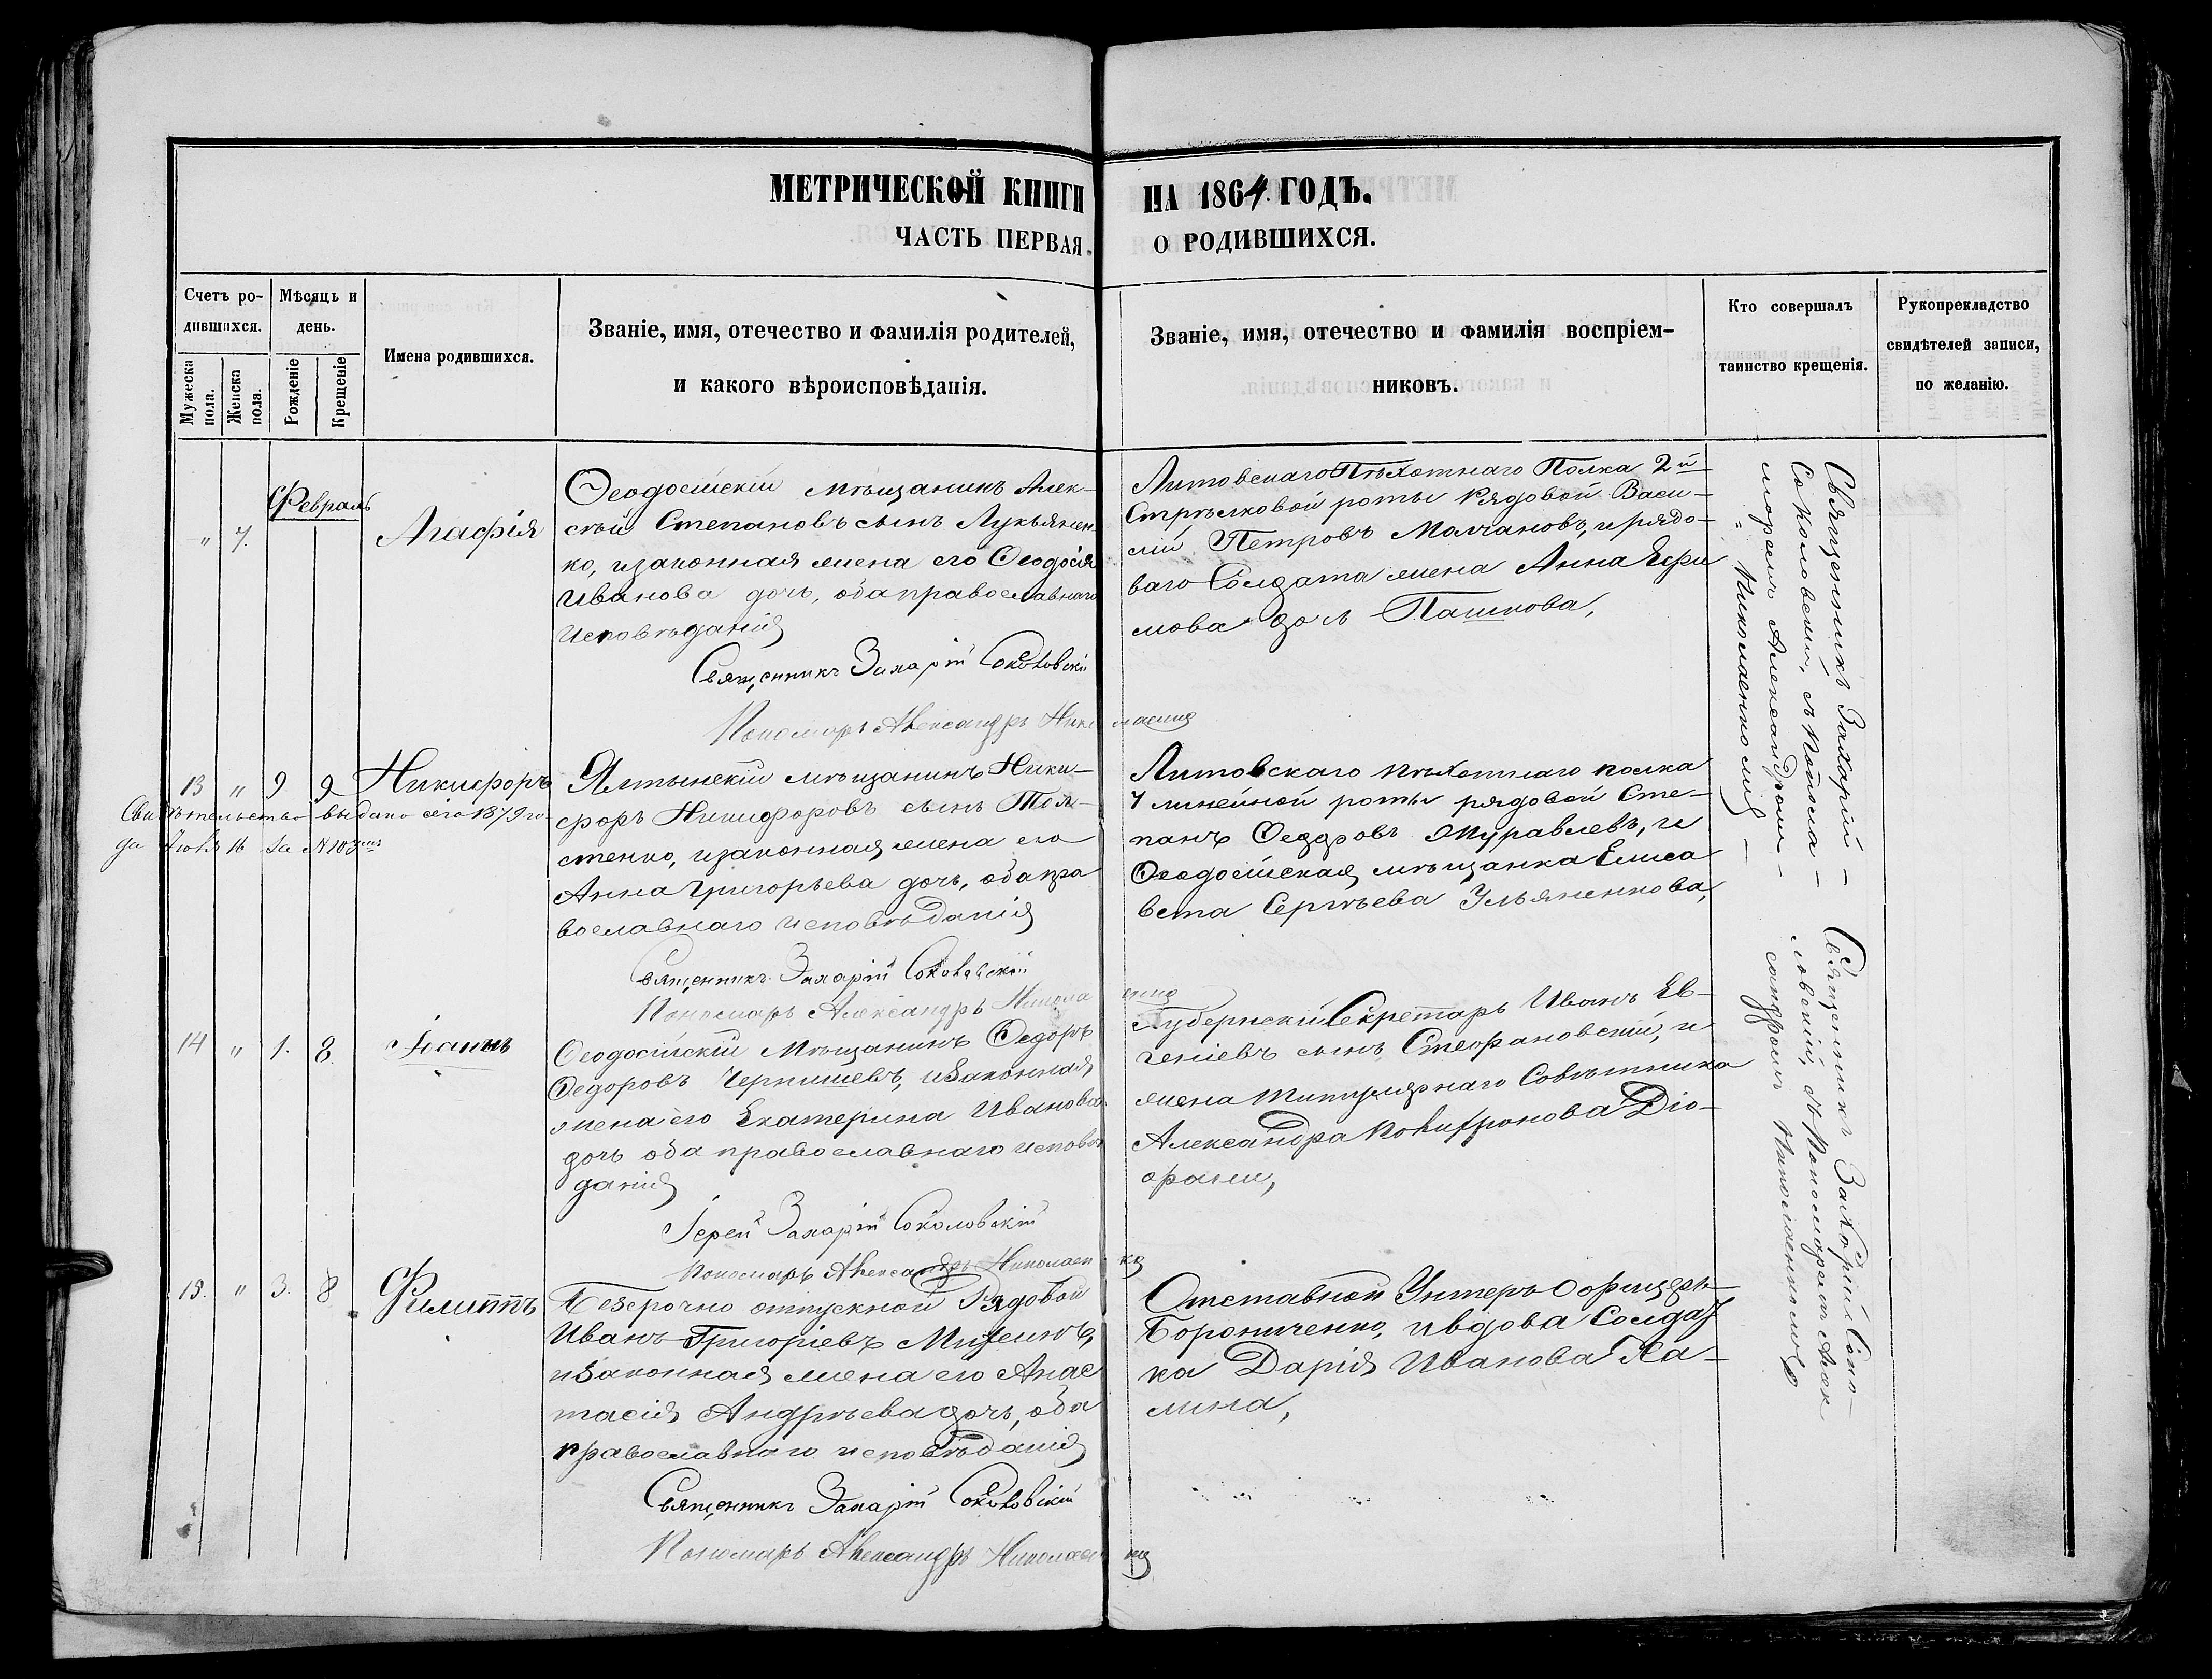 МЕТРИЧЕСКОЙ КНИГИ НА 1864 ГОДЪ.
ЧАСТЬ ПЕРВАЯ. О РОДИВШИХСЯ.
Счетъ родившихся.
Мужеска пола.
Женска пола.
Мѣсяцъ и день.
Рожденіе
Крещеніе
Имена родившихся.
Званіе, имя, отечество и фамилія родителей,
и какого вѣроисповѣданія.
Званіе, имя, отечество и фамилія воспріем-
никовъ.
Кто совершалъ
таинство крещенія.
Рукоприкладство
свидѣтелей записи,
по желанію.
Февраль
" 7. Агафія
Ѳеодосійскій мѣщанинъ Алек-
сѣй Степановъ сынъ Лукьянен
ко, изаконная жена его Ѳеодосія
Иванова дочь, оба православнаго
исповѣданія
Священникъ Захарій Соколовскій
Пономарь Александръ Николаенко
Литовскаго Пѣхотнаго Полка 2й
Стрѣлковой роты Рядовой Васи-
лій Петровъ Молчановъ, и рядо-
ваго Солдата жена Анна Ефи
мова дочь Пашкова,
13 " 9 9 Никифоръ
Свидѣтельство выдано сего 1879 го-
да Іюля 16 за №
Ялтынскій мѣщанинъ Ники-
форъ Никифоровъ сынъ Тол-
стенко, изаконная жена его
Анна Григорьева дочь, оба пра
вославнаго исповѣданія
Священникъ Захарій Соколовскій
Пономарь Александръ Николаенко
Литовскаго пѣхотнаго полка
линейной роты рядовой Сте-
панъ Ѳедоровъ Муравлевъ, и
Ѳеодосійская мѣщанка Елиса
вета Сергѣева Ульяненкова,
14 " 1. 8. Іоаннъ
Ѳеодосійскій Мѣщанинъ Ѳедоръ
Ѳедоровъ Чернишевъ, изаконная
жена его Екатерина Иванова
дочь оба православнаго исповѣ
данія
Іерей Захарій Соколовскій
Пономарь Александръ Николаенко
Губернскій Секретарь Иванъ Ев-
геніевъ сынъ Стефановскій, и
жена Титулярнаго Совѣтника
Александра
15. " 3. 8 Филиппъ
Безсрочно отпускной Рядовой
Иванъ Григоріевъ
изаконная жена его Анас
тасія Андрѣева дочь, оба
православнаго исповѣданія
Священникъ Захарій Соколовскій
Пономарь Александръ Николаенко
Отставной Унтеръ Офицеръ
Борониченко, ивдова Солдат
ка Дарія Иванова Ка-
лина,
Священникъ Захарій -
Соколовскій, съ
марем Александромъ -
" Николаенкомъ -
Священникъ Захарій Соко-
ловскій, съ Пономаремъ Алек
сандромъ Николаенкомъ